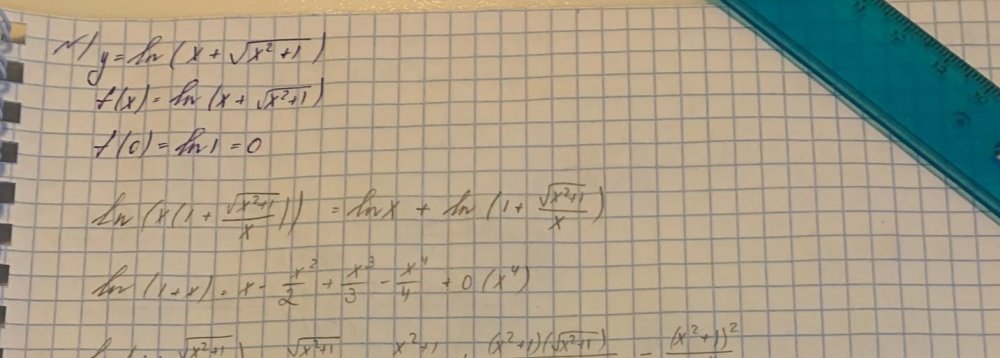 №1 y = ln (x + √(x² + 1))
f(x) = ln (x + √(x²+1))
f(0) = ln 1 = 0
ln (x(1 + √(x²+1)/x)) = ln x + ln (1 + √(x²+1)/x)
ln (1+x) = x - x²/2 + x³/3 - x⁴/4 + 0 (x⁴)
√(x²+1) √(x²+1) x²+1 (x²+1)(√(x²+1)) - (x²+1)²